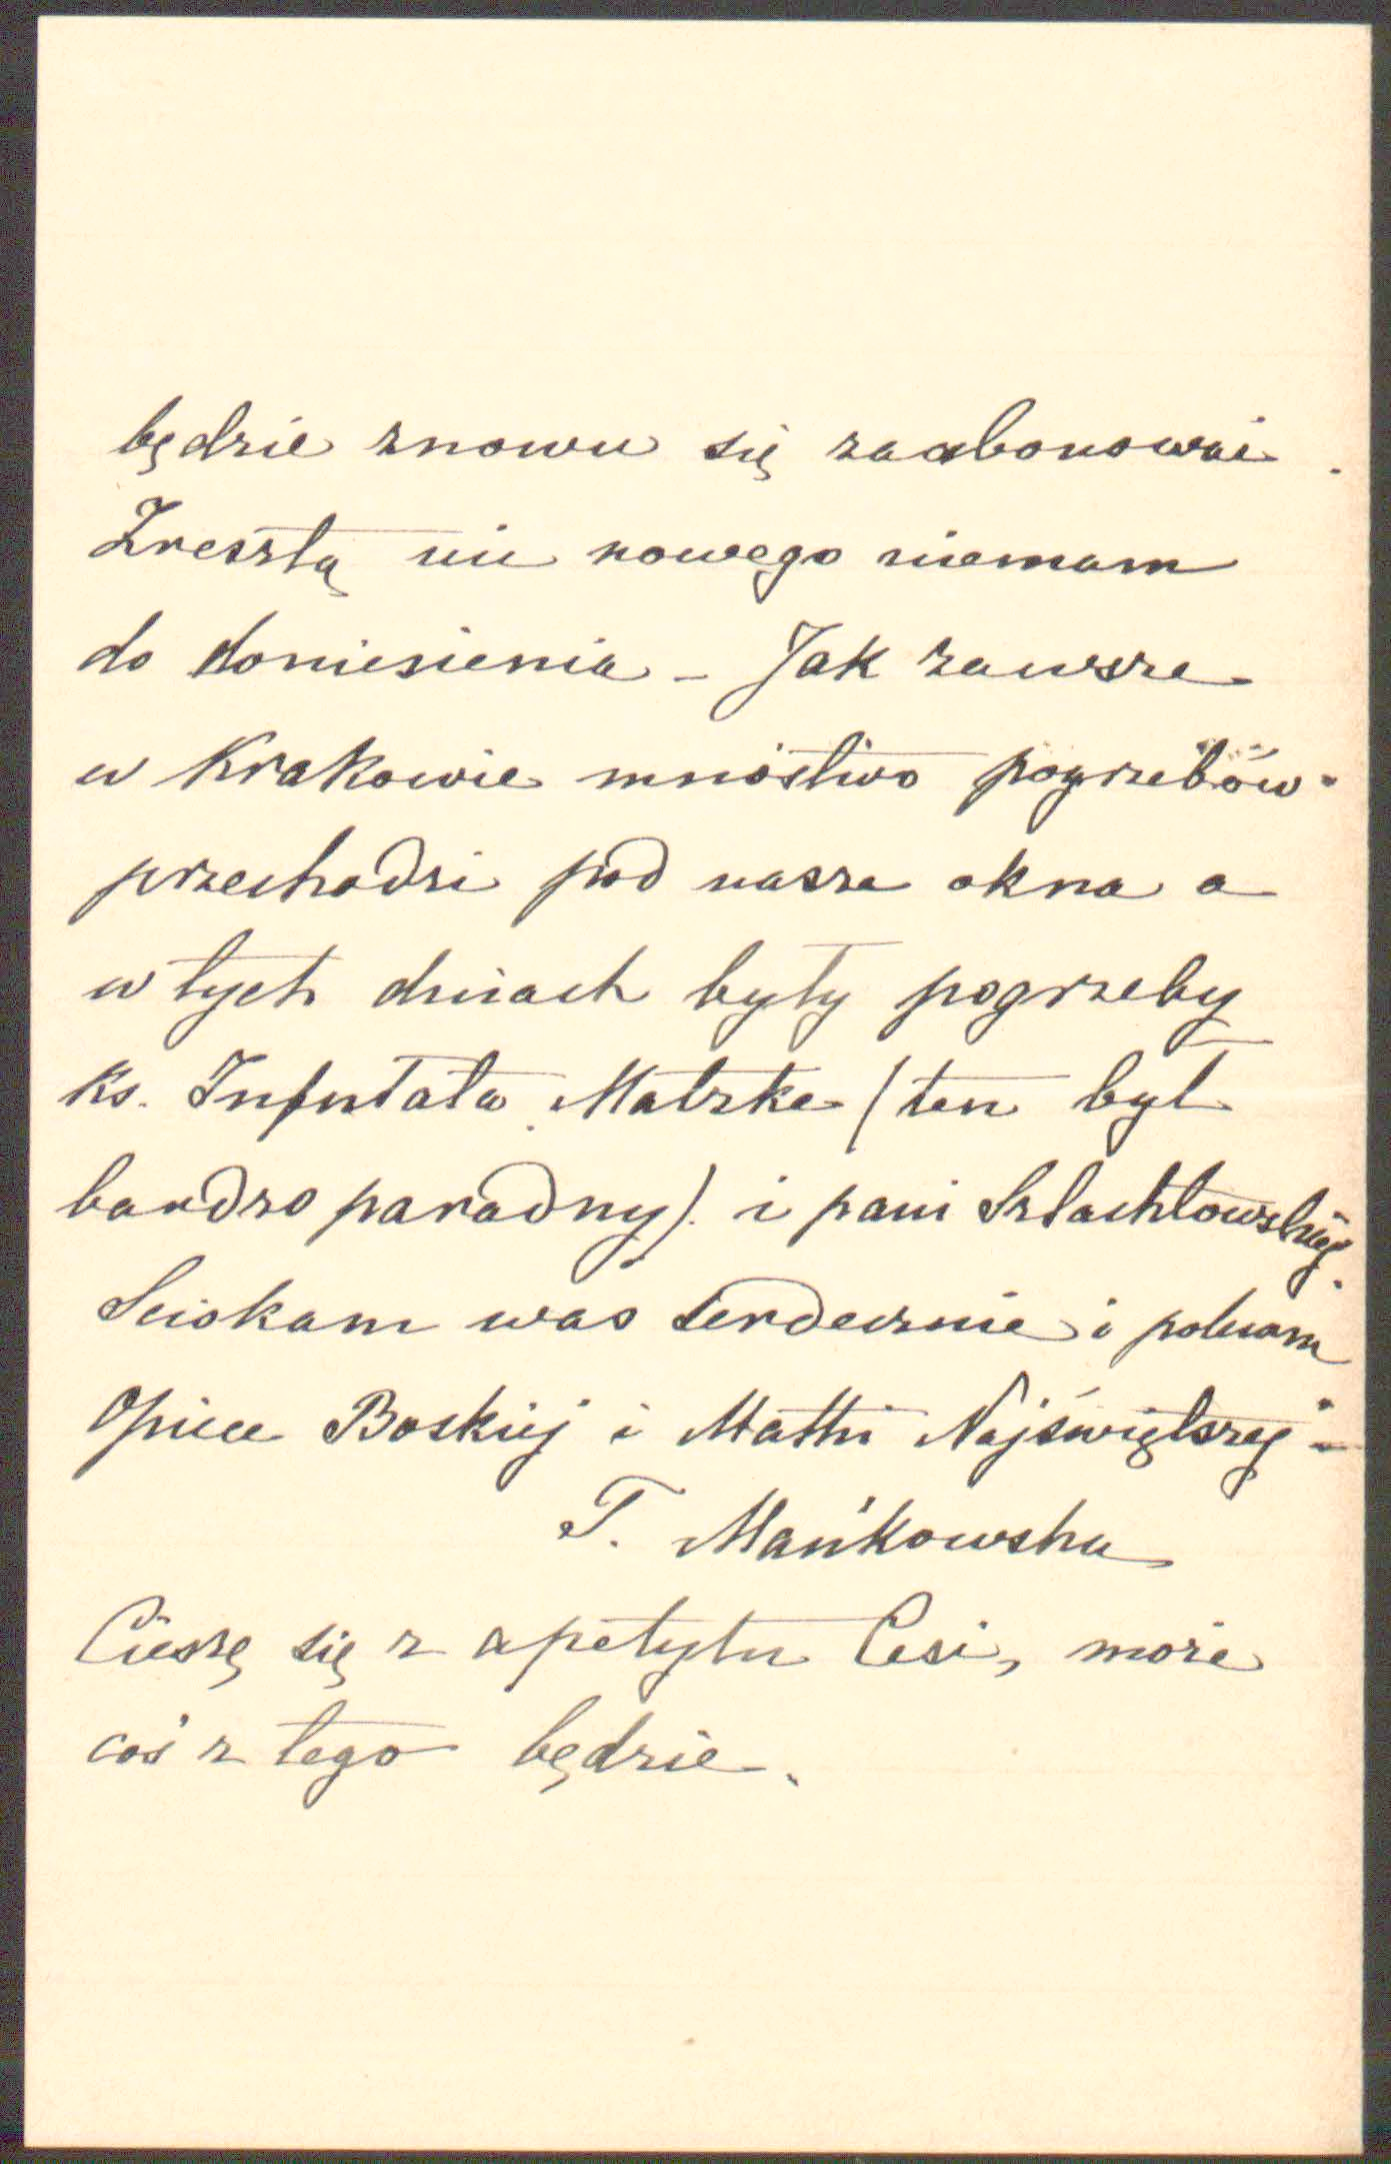 będzie znowu się zaabonować.
Zresztą nic nowego niemam
do doniesienia – Jak zawsze
w Krakowie mnóstwo pogrzebów
przechodzi pod nasze okna a
w tych dniach były pogrzeby
ks. Infułata Matzke (ten był
bardzo paradny). i pani Szlachtowskiej.
Sciskam was serdecznie i polecam
Opiece Boskiej i Matki Najświętszej –
T. Mańkowska
Cieszę się z apetytu Cesi, może
coś z tego będzie.